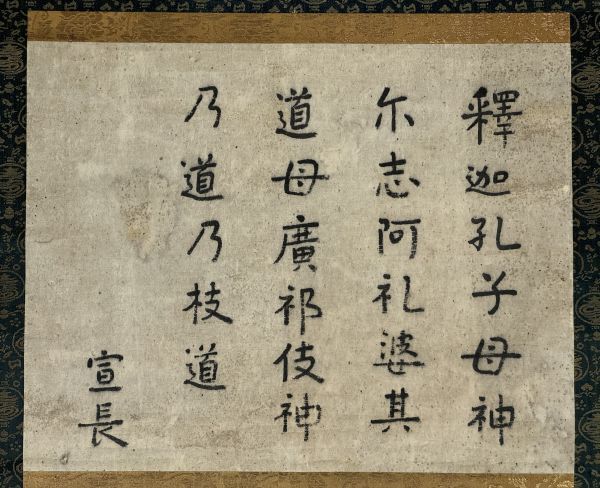 釋迦孔子母神
尓志阿礼婆其
道母廣祁伎神
乃道乃枝道
宣長